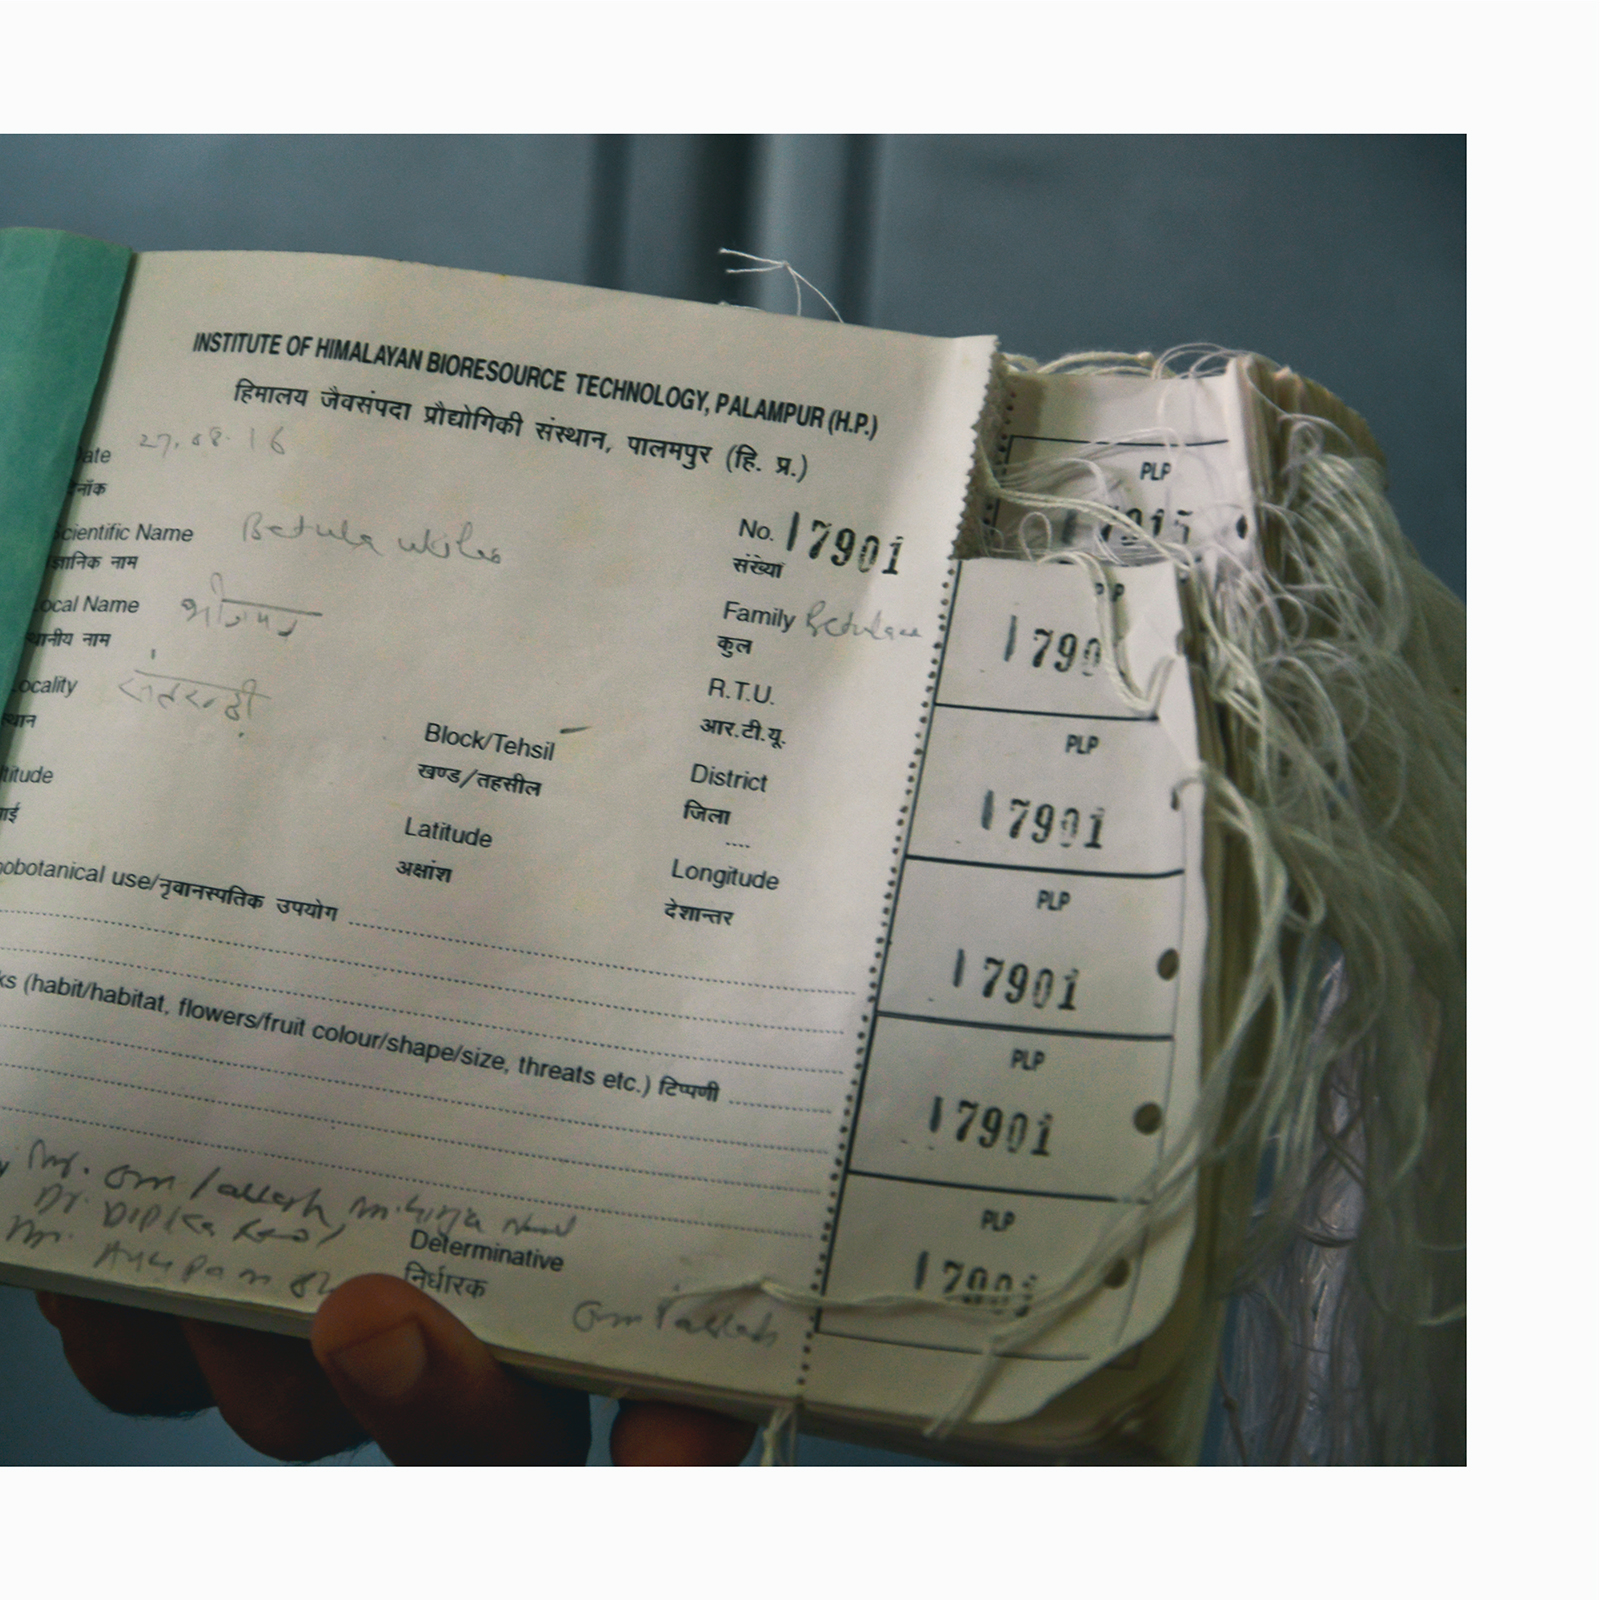 INSTITUTE OF HIMALAYAN BIORESOURCE TECHNOLOGY, PALAMPUR (H.P.)
हिमालय जैवसंपदा प्रौद्योगिकी संस्थान, पालमपुर (हि. प्र.)
ate 27.08.16
नाँक
cientific Name Betula utilis No. 17901
ज्ञानिक नाम संख्या
ocal Name भोजपत्र Family Betulaceae
थानीय नाम कुल
ocality R.T.U.
स्थान आर.टी.यू.
Block/Tehsil –
खण्ड/तहसील
titude District
जिला
Latitude ....
अक्षांश
Longitude
देशान्तर
nobotanical use/नृवानस्पतिक उपयोग
ks (habit/habitat, flowers/fruit colour/shape/size, threats etc.) टिप्पणी
y Mr. Om
Dr. Dipika
Mr. Anupam
Determinative
निर्धारक
Om
PLP
17915
PLP
1790
PLP
17901
PLP
17901
PLP
17901
PLP
17901